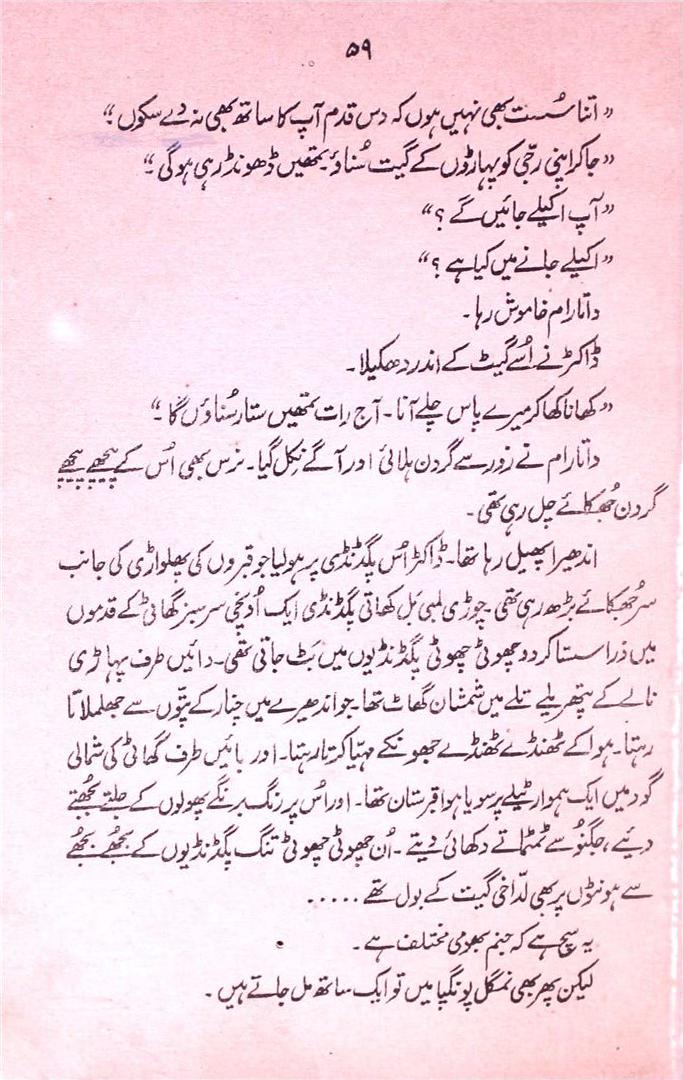 ۵۹
"اتنا سُست بھی نہیں ہوں کہ دس قدم آپ کا ساتھ بھی نہ دے سکوں۔"
"جاکر اپنی رجّی کو پہاڑوں کے گیت سُناؤ۔ تمھیں ڈھونڈ رہی ہوگی۔"
"آپ اکیلے جائیں گے؟"
"اکیلے جانے میں کیا ہے؟"
داتا رام خاموش رہا۔
ڈاکٹر نے اُسے گیٹ کے اندر دھکیلا۔
"کھانا کھاکر میرے پاس چلے آنا۔ آج رات تمھیں ستار سُناؤں گا۔"
داتا رام نے زور سے گردن ہلائی اور آگے نکل گیا۔ نرس بھی اُس کے پیچھے پیچھے
گردن جُھکائے چل رہی تھی۔
اندھیرا پھیل رہا تھا۔ ڈاکٹر اُس پگڈنڈی پر ہولیا جو قبروں کی پھلواڑی کی جانب
سر جُھکائے بڑھ رہی تھی۔ چوڑی لمبی بَل کھاتی پگڈنڈی ایک اُونچی سرسبز گھاٹی کے قدموں
میں ذرا سستاکر دو چھوٹی چھوٹی پگڈنڈیوں میں بَٹ جاتی تھی۔ دائیں طرف پہاڑی
نالے کے پتھریلے تلے میں شمشان گھاٹ تھا۔ جو اندھیرے میں چنار کے پتّوں سے جھلملاتا
رہتا۔ ہوا کے ٹھنڈے ٹھنڈے جھونکے مہیّا کرتا رہتا۔ اور بائیں طرف گھاٹی کی شمالی
گود میں ایک ہموار ٹیلے پر سویا ہوا قبرستان تھا۔ اور اُس پر رنگ برنگے پھولوں کے جلتے بُجھتے
دئیے، جگنوُ سے ٹمٹماتے دکھائی دیتے۔ اُن چھوٹی چھوٹی تنگ پگڈنڈیوں کے بُجھے بُجھے
سے ہونٹوں پر بھی لدّاخی گیت کے بول تھے.....
یہ سچ ہے کہ جنم بھومی مختلف ہے۔
لیکن پھر بھی نمگل پونگپا میں تو ایک ساتھ مل جاتے ہیں۔